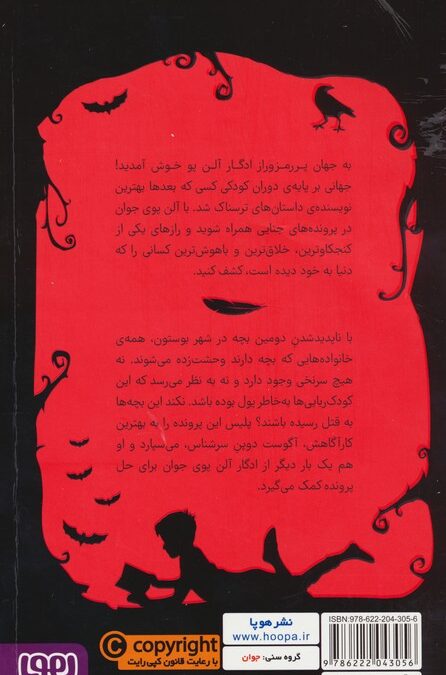 به جهان پررمزوراز ادگار آلن پو خوش آمدید!
جهانی بر پایه‌ی دوران کودکی کسی که بعدها بهترین
نویسنده‌ی داستان‌های ترسناک شد. با آلن پوی جوان
در پرونده‌های جنایی همراه شوید و رازهای یکی از
کنجکاوترین، خلاق‌ترین و باهوش‌ترین کسانی را که
دنیا به خود دیده است، کشف کنید.
با ناپدیدشدن دومین بچه در شهر بوستون، همه‌ی
خانواده‌هایی که بچه دارند وحشت‌زده می‌شوند. نه
هیچ سرنخی وجود دارد و نه به نظر می‌رسد که این
کودک‌ربایی‌ها به‌خاطر پول بوده باشد. نکند این بچه‌ها
به قتل رسیده باشند؟ پلیس این پرونده را به بهترین
کارآگاهش، آگوست دوپن سرشناس، می‌سپارد و او
هم یک بار دیگر از ادگار آلن پوی جوان برای حل
پرونده کمک می‌گیرد.
ISBN: 978-622-204-305-6
9 786222 043056
نشر هوپا
www.hoopa.ir
گروه سنی: جوان
© copyright
با رعایت قانون کپی‌رایت
هوپا